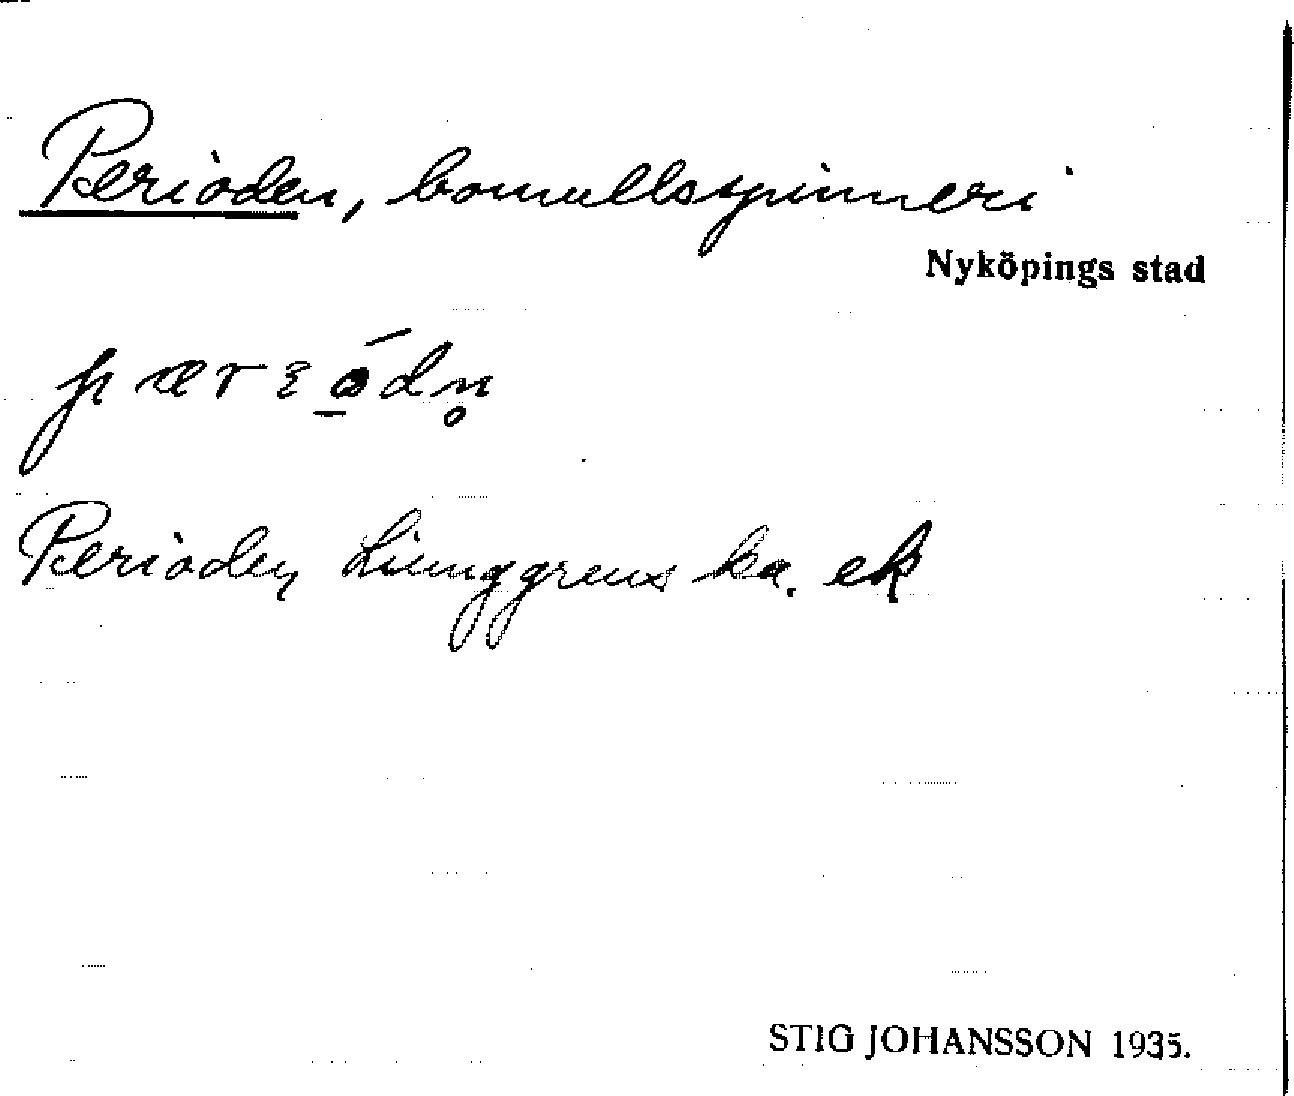 Perioden, bomullsspinneri
Nyköpings stad
Perioden Ljunggrens ka. ek
STIG JOHANSSON 1935.